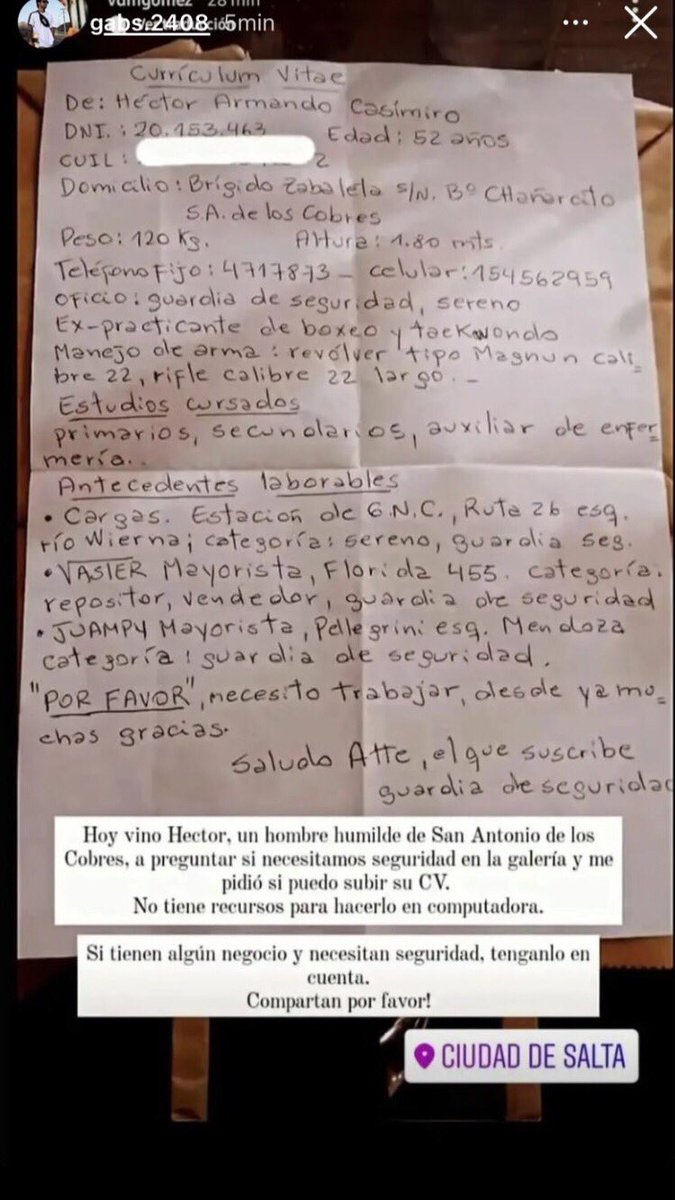 vanigomez 28 min
gabs.2408 5min
Ver traducción
Currículum Vitae
De: Héctor Armando Casimiro
DNI.: 20.153.463 Edad: 52 años
CUIL: 2
Domicilio: Brígido Zabaleta s/N. Bº CHañarcito
S.A. de los Cobres
Peso: 120 Kg. Altura: 1.80 mts.
Teléfono Fijo: 4717873 - celular: 154562959
oficio: guardia de seguridad, sereno
Ex-practicante de boxeo y taekwondo
Manejo de arma: revólver tipo Magnun cali_
bre 22, rifle calibre 22 largo. -
Estudios cursados
primarios, secundarios, auxiliar de enfer
mería..
Antecedentes laborables
• Cargas. Estación de G.N.C., Ruta 26 esq.
río Wierna; categoría: sereno, guardia seg.
• VASIER Mayorista, Florida 455. categoría.
repositor, vendedor, guardia de seguridad
• JUAMPY Mayorista, Pellegrini esq. Mendoza
categoría: guardia de seguridad.
"POR FAVOR", necesito trabajar, desde ya mu_
chas gracias.
Saludo Atte, el que suscribe
guardia de seguridad
Hoy vino Hector, un hombre humilde de San Antonio de los
Cobres, a preguntar si necesitamos seguridad en la galería y me
pidió si puedo subir su CV.
No tiene recursos para hacerlo en computadora.
Si tienen algún negocio y necesitan seguridad, tenganlo en
cuenta.
Compartan por favor!
CIUDAD DE SALTA